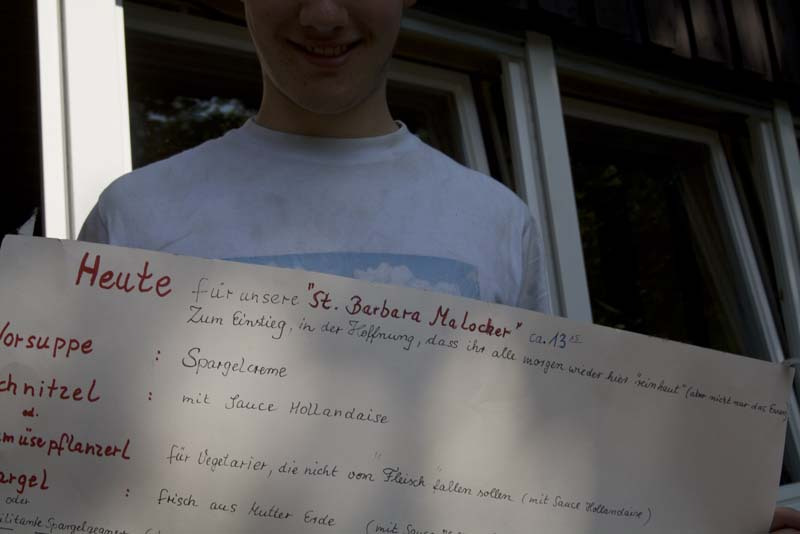 Heute für unsere "St. Barbara Malocher" ca. 13
Zum Einstieg, in der Hoffnung, dass ihr alle morgen wieder hier "reinhaut" (aber nicht nur das Essen)
Vorsuppe : Spargelcreme
chnitzel : mit Sauce Hollandaise
od.
müsepflanzerl für Vegetarier, die nicht vom "Fleisch" fallen sollen (mit Sauce Hollandaise)
argel : frisch aus Mutter Erde (mit Sauce
oder
militante Spargelgegner